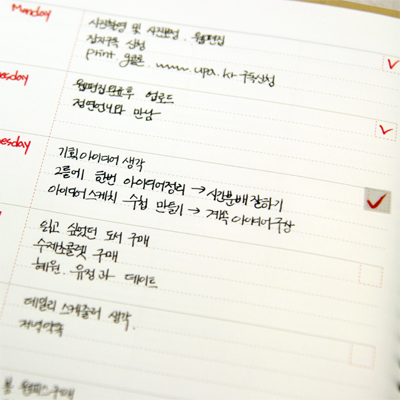 Monday
사진촬영 및 사진보정. 웹편집
잡지구독 신청
print 물론. www.upa.kr 구독신청
esday
웹편집완료후 업로드
지연언니와 만남
nesday
기획아이디어 생각
2틀에 한번 아이디어정리 → 시간분배 잘하기
아이디어스케치 수첩 만들기 → 계속 아이디어구상
읽고 싶었던 도서 구매
수제초콜렛 구매
혜원. 유정과 데이트
데일리 스케쥴러 생각.
저녁약속
봄 원피스구매